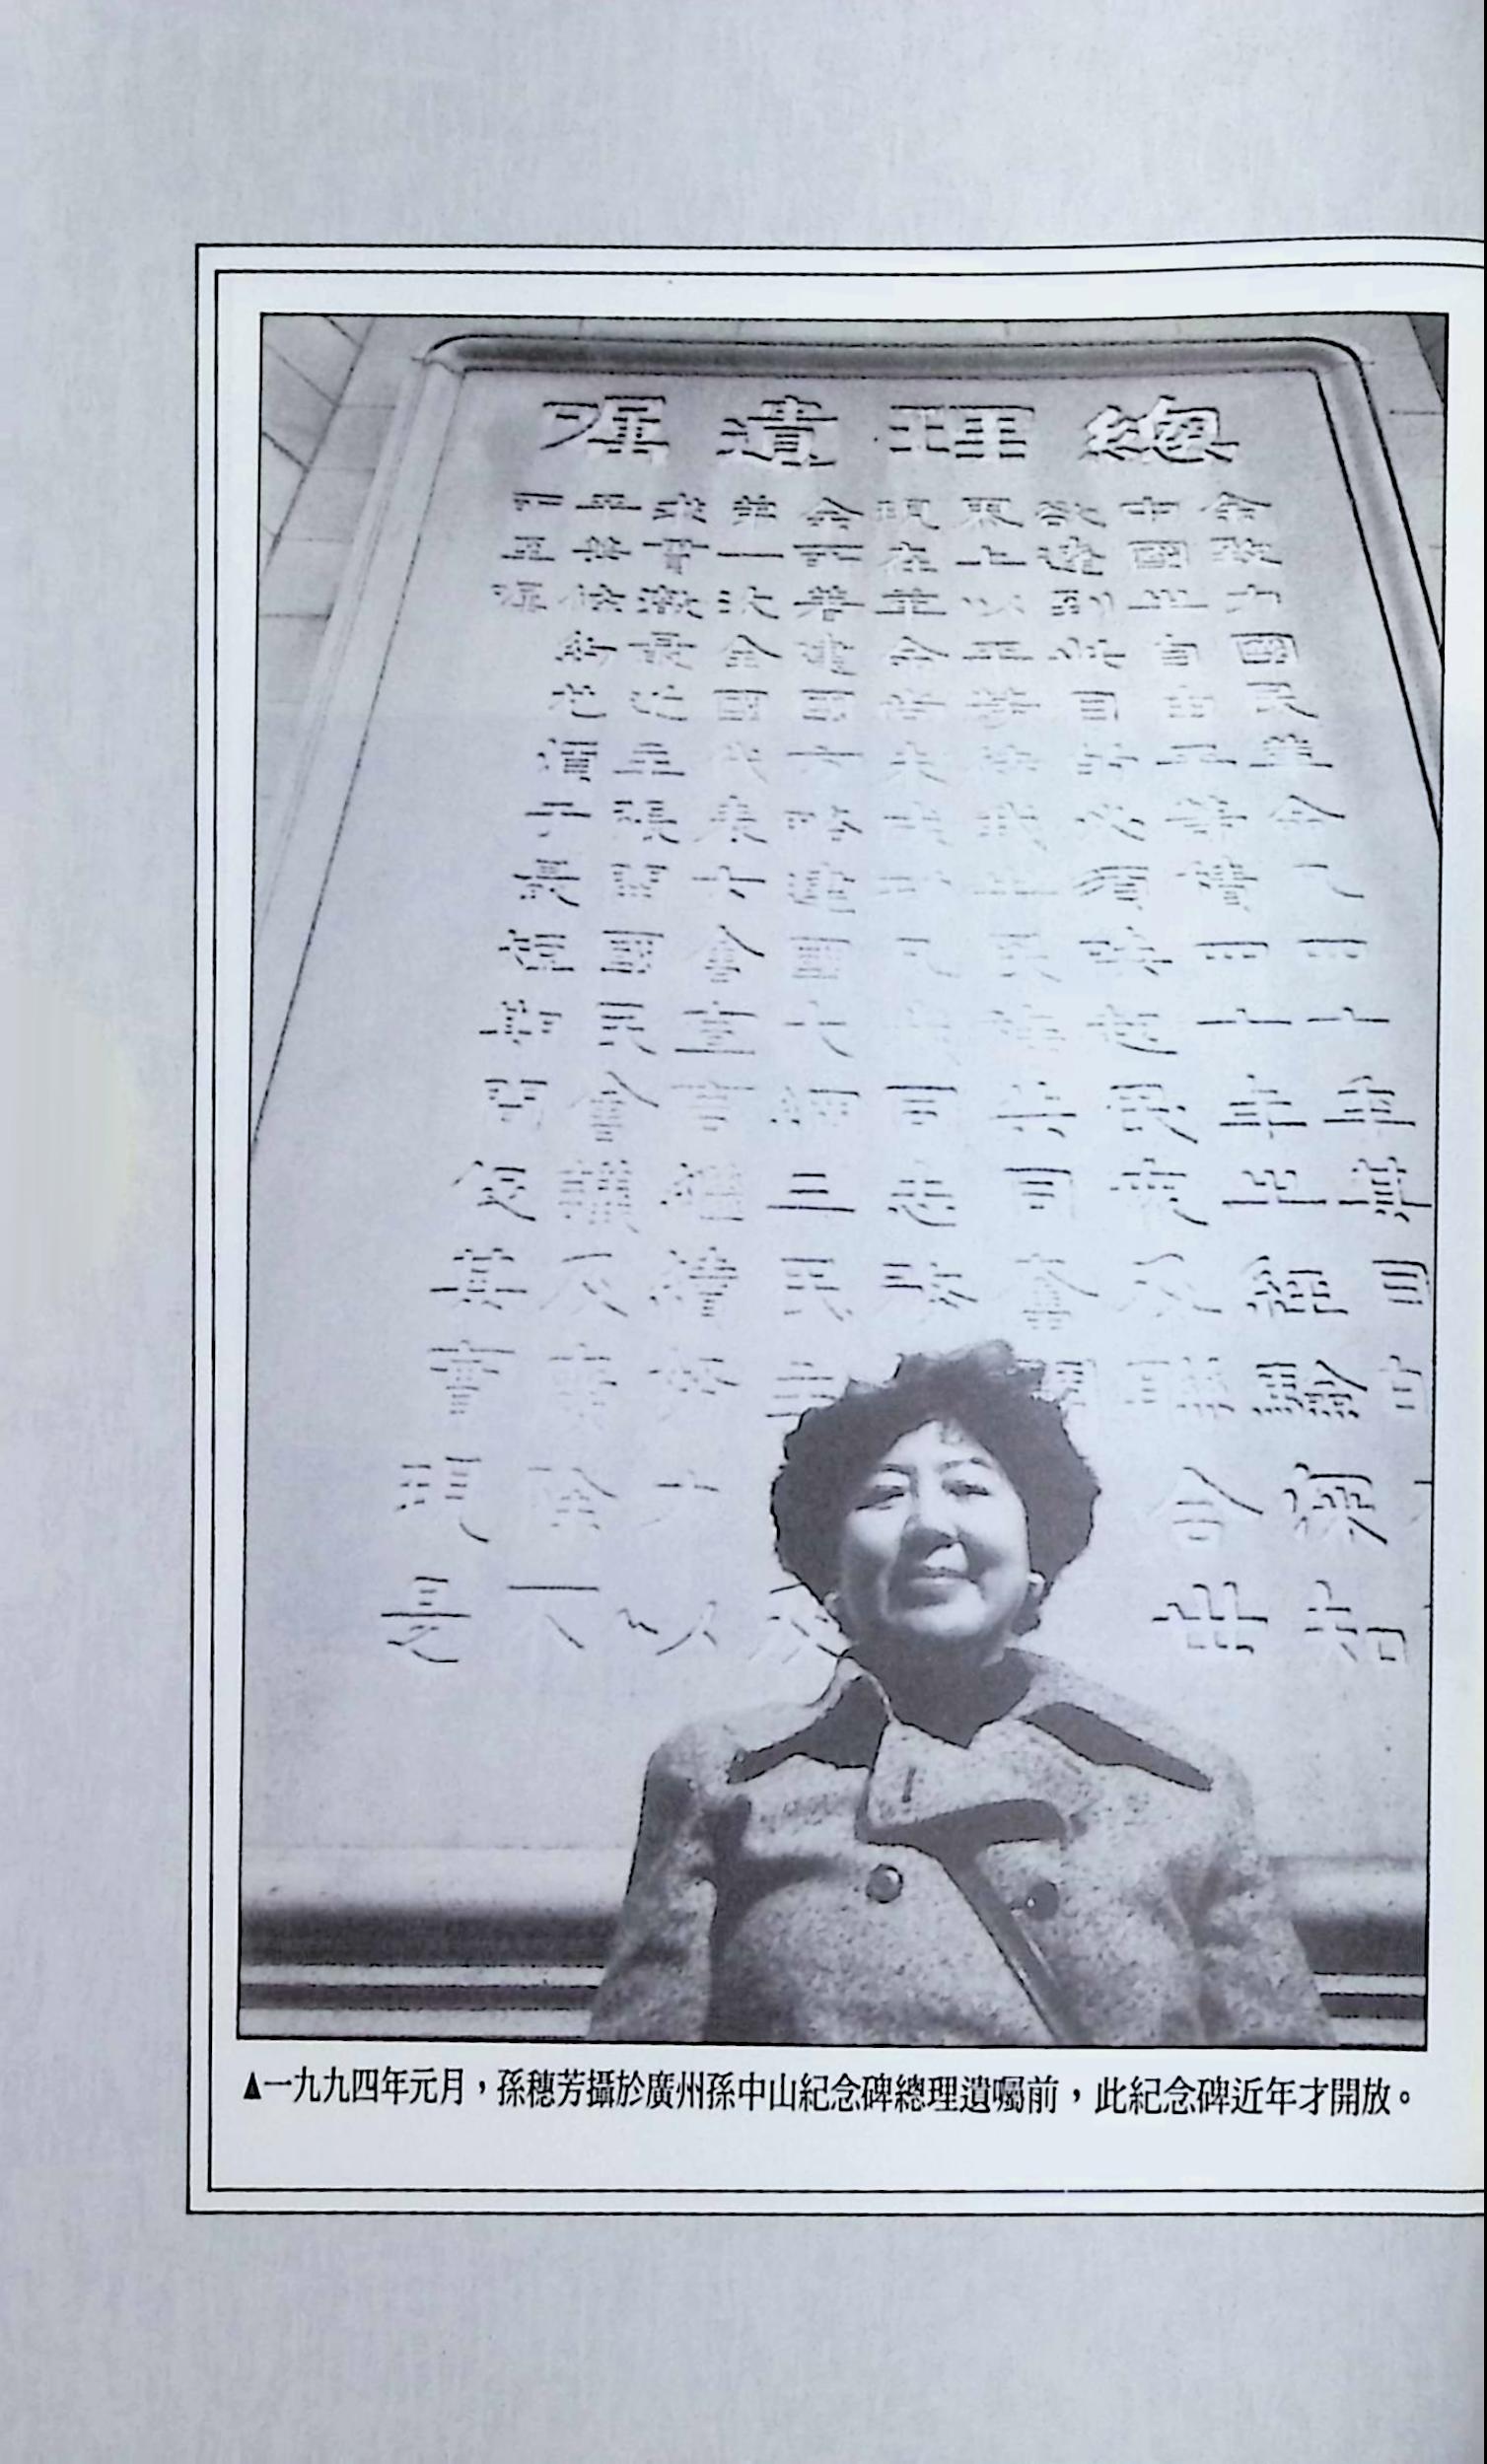 總理遺囑
余致力國民革命凡四十年其目
中國之自由平等積四十年之經驗深知
欲達到此目的必須喚起民衆及聯合世
界上以平等待我之民族共同奮鬥
現在革命尚未成功凡我同志務
余所著建國方略建國大綱三民主 及
第一次全國代表大會宣言繼續努力以
求貫徹最近主張開國民會議及廢除不
平等條約尤須于最短期間促其實現是
所至囑
▲一九九四年元月，孫穗芳攝於廣州孫中山紀念碑總理遺囑前，此紀念碑近年才開放。